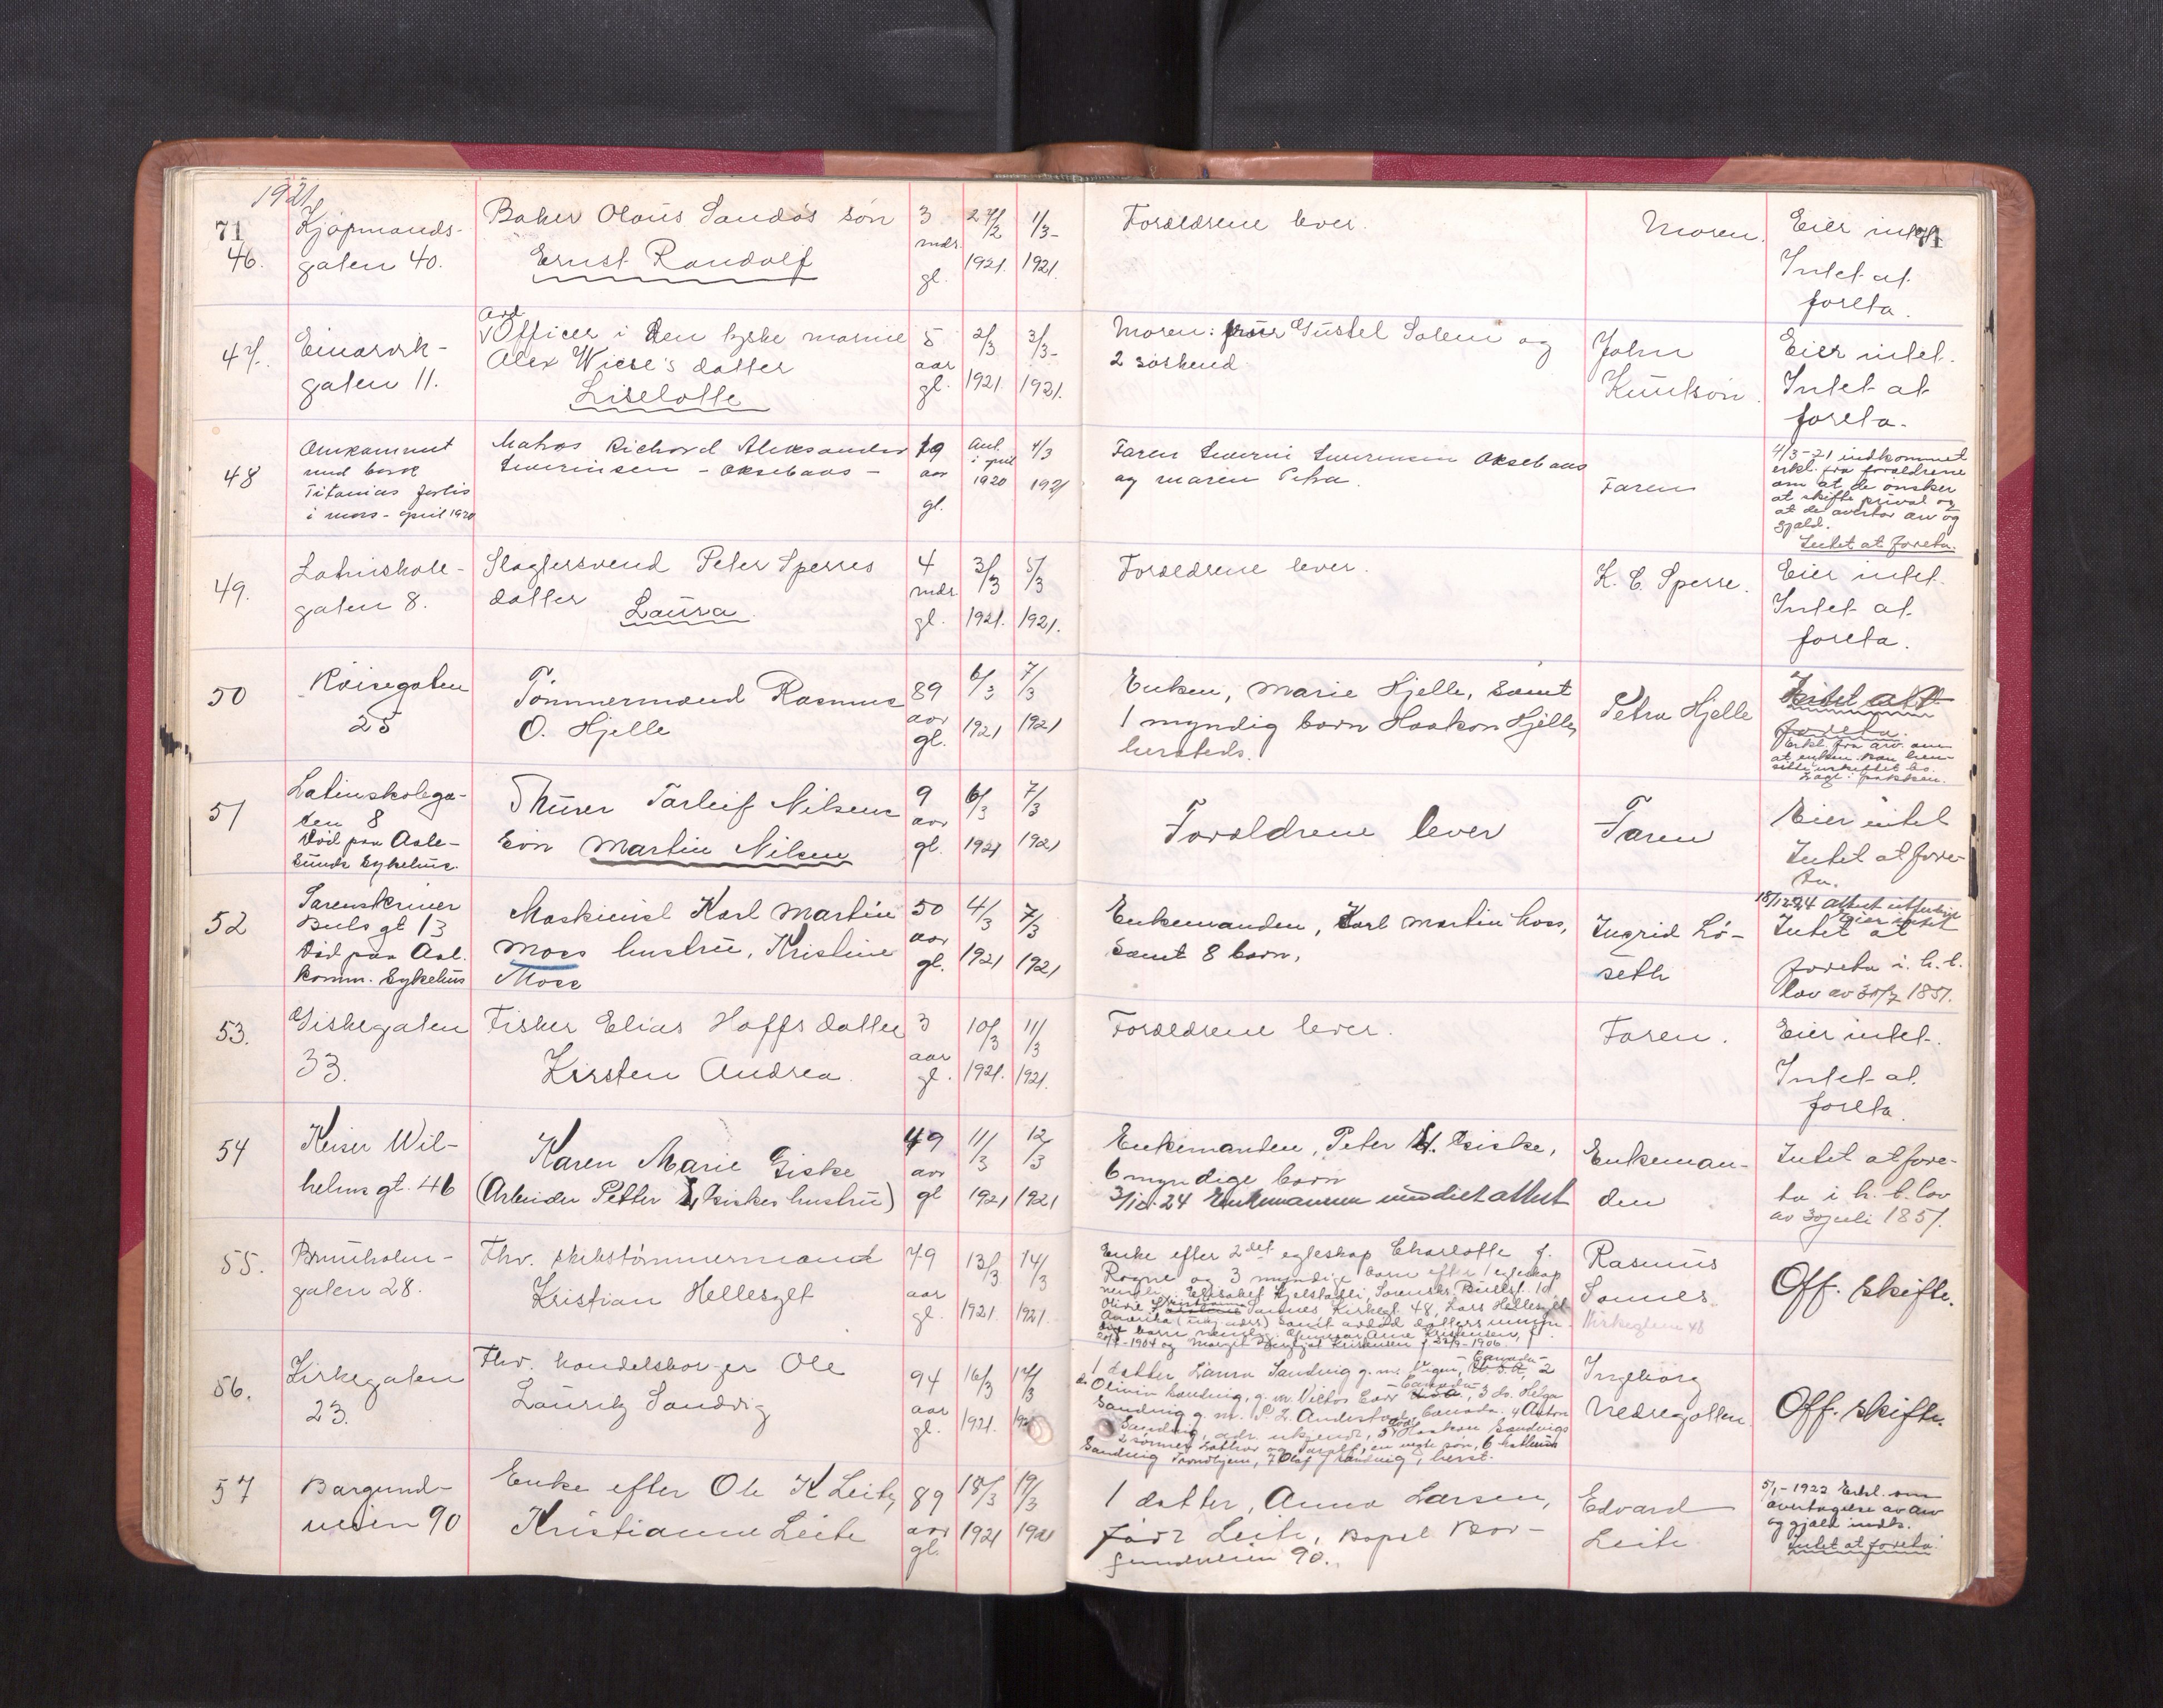 1921
71
46.
Kjøpmands-
gaten 40.
Baker Olaus Sandøs søn
Ernst Randolf
3
mdr.
gl.
27/2
1921.
1/3-
1921.
Forældrene lever.
Moren.
Eier intet
71
Intet at
foreta.
47.
Einarvik-
gaten 11.
Officer i den tyske marine
Alex Wiese's datter
Liselotte
5
aar
gl.
2/3
1921.
3/3-
1921.
Moren: fru Gustel Solem og
2 søskend
John
Knutson.
Eier intet.
Intet at
foreta.
48
Omkommet
med bark
Titanias forlis
i mars-april 1920
Matros Richard Aleksander
Severinsen - Oksebaas -
19
aar
gl.
Ant.
i april
1920
4/3
1921
Faren Severin Severinsen Oksebaas
og maren Petra.
Faren
4/3-21 indkommet
erkl. fra forældrene
om at de ønsker
at skifte privat og
at de avertar arv og
gjæld.
Intet at foreta.
49.
Latinskole-
gaten 8.
Slagtersvend Peter Sperres
datter
Laura
4
mdr
gl.
3/3
1921.
5/3
1921.
Forældrene lever.
K. C. Sperre.
Eier intet.
Intet at
foreta.
50
Røisegaten
25
Tømmermand Rasmus
O. Hjelle
89
aar
gl.
6/3
1921
7/3
1921
Enken, Marie Hjelle, samt
1 myndig barn Haakon Hjelle,
hersteds.
Petra Hjelle
Intet att
foreta.
Erkl. fra arv. om
at enken kan hen-
sitte i uskiftet bo.
Lagt i pakken.
51
Latinskolega-
ten 8
Død paa Aale-
sunds sykehus.
Murer Tarleif Nilsens
søn Martin Nilsen
9
aar
gl.
6/3
1921
7/3
1921
Forældrene lever
Faren
Eier intet
Intet at fore-
ta.
52
Sorenskriver
Buls gt 13
Død paa Aal.
komm. Sykehus
Maskinist Karl Martin
Moss hustru, Kristine
Moss
50
aar
gl.
4/3
1921
7/3
1921
Enkemanden, Karl Martin Moss,
samt 8 barn,
Ingrid Lø-
seth
18/12-24 Attest utferdiget
Eier intet
Intet at
foreta i. h. t.
lov av 30/7 1851.
53.
Giskegaten
33.
Fisker Elias Hoffs datter
Kirsten Andrea
3
aar
gl.
10/3
1921.
11/3
1921.
Forældrene lever.
Faren.
Eier intet.
Intet at
foreta.
54
Keiser Wil-
helms gt. 46
Karen Marie Giske
(Arbeider Petter L. Giskes hustru)
49
aar
gl
11/3
1921
12/3
1921
Enkemanden, Peter L. Giske,
6 myndige barn
3/10-24 Enkemannen meddelt attest
Enkeman-
den
Intet at fore-
ta i h. t. lov
av 30 juli 1851.
55.
Brunholm-
gaten 28.
Fhv. skibstømmermand
Kristian Hellesylt
79
aar
gl.
13/3
1921.
14/3
1921.
Enke efter 2det egteskap Charlotte f.
Rogne og 3 myndige barn efter 1 egteskap
nemlig: Elisabet Hjelstadli, Sorenskr. Bullsgt. 10,
Olivie Sannes Kirkegt. 48, Lars Hellesylt
Amerika (ukj. adrs) samt avdød datters umyn-
dige barn nemlig: Gunnvar Arne Kristensen, f.
-1904 og Margit Kristensen f. 22/9-1906
Rasmus
Sannes.
Kirkegten 48
Off. skifte.
56.
Kirkegaten
23.
Fhv. handelsborger Ole
Lauritz Sandvig
94
aar
gl.
16/3
1921.
17/3
1921
1 datter Laura Sandvig g. m. Canada 2
do Olivia Sandvig, g. m. Viktor Canada, 3 do. Helga
Sandvig g. m. P. Z. Canada. 4 Anton
Sandvig, adr. ukjendt, 5 Haakon Sandvigs
2 sønner en uegte søn, 6
Sandvig Trondhjem, 7 Olaf Sandvig, herst.
Ingeborg
Nedregotten.
Off. skifte.
57
Borgund-
veien 90
Enke efter Ole K Leite,
Kristianne Leite
89
aar
gl.
18/3
1921
19/3
1921
1 datter, Anna Larsen,
født Leite, Bopæl Bor-
gundveien 90.
Edvard
Leite
5/1-1922 Erkl. om
overtagelse av arv
og gjæld indk.
Intet at foreta.